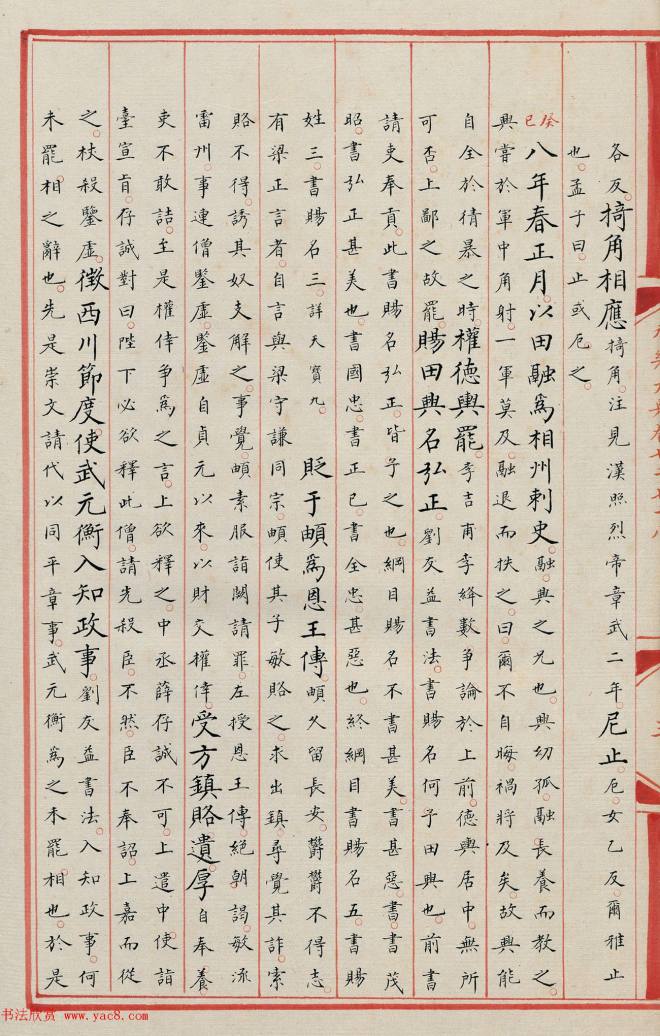 各反掎角相應掎角注見漢照烈帝章武二年尼止尼女乙反爾雅止
也孟子曰止或尼之
癸巳
八年春正月以田融爲相州刺史融興之兄也興幼孤融長養而教之
興嘗於軍中角射一軍莫及融退而抶之曰爾不自晦禍將及矣故興能
自全於猜暴之時權德輿罷李吉甫李絳數爭論於上前德輿居中無所
可否上鄙之故罷賜田興名弘正劉友益書法書賜名何予田興也前書
請吏奉貢此書賜名弘正皆予之也綱目賜名不書甚美書甚惡書書茂
昭書弘正甚美也書國忠書正己書全忠甚惡也終綱目書賜名五書賜
姓三書賜名三詳天寶九 貶于頔爲恩王傅頔久留長安鬱鬱不得志
有梁正言者自言與梁守謙同宗頔使其子敏賂之求出鎮尋覺其詐索
賂不得誘其奴支解之事覺頔素服詣闕請罪左授恩王傅絕朝謁敏流
雷州事連僧鑒虛鑒虛自貞元以來以財交權倖受方鎮賂遺厚自奉養
吏不敢詰至是權倖爭爲之言上欲釋之中丞薛存誠不可上遣中使詣
臺宣旨存誠對曰陛下必欲釋此僧請先殺臣不然臣不奉詔上嘉而從
之杖殺鑒虛徵西川節度使武元衡入知政事劉友益書法入知政事何
未罷相之辭也先是崇文請代以同平章事武元衡爲之未罷相也於是
书法欣赏 www.yac8.com